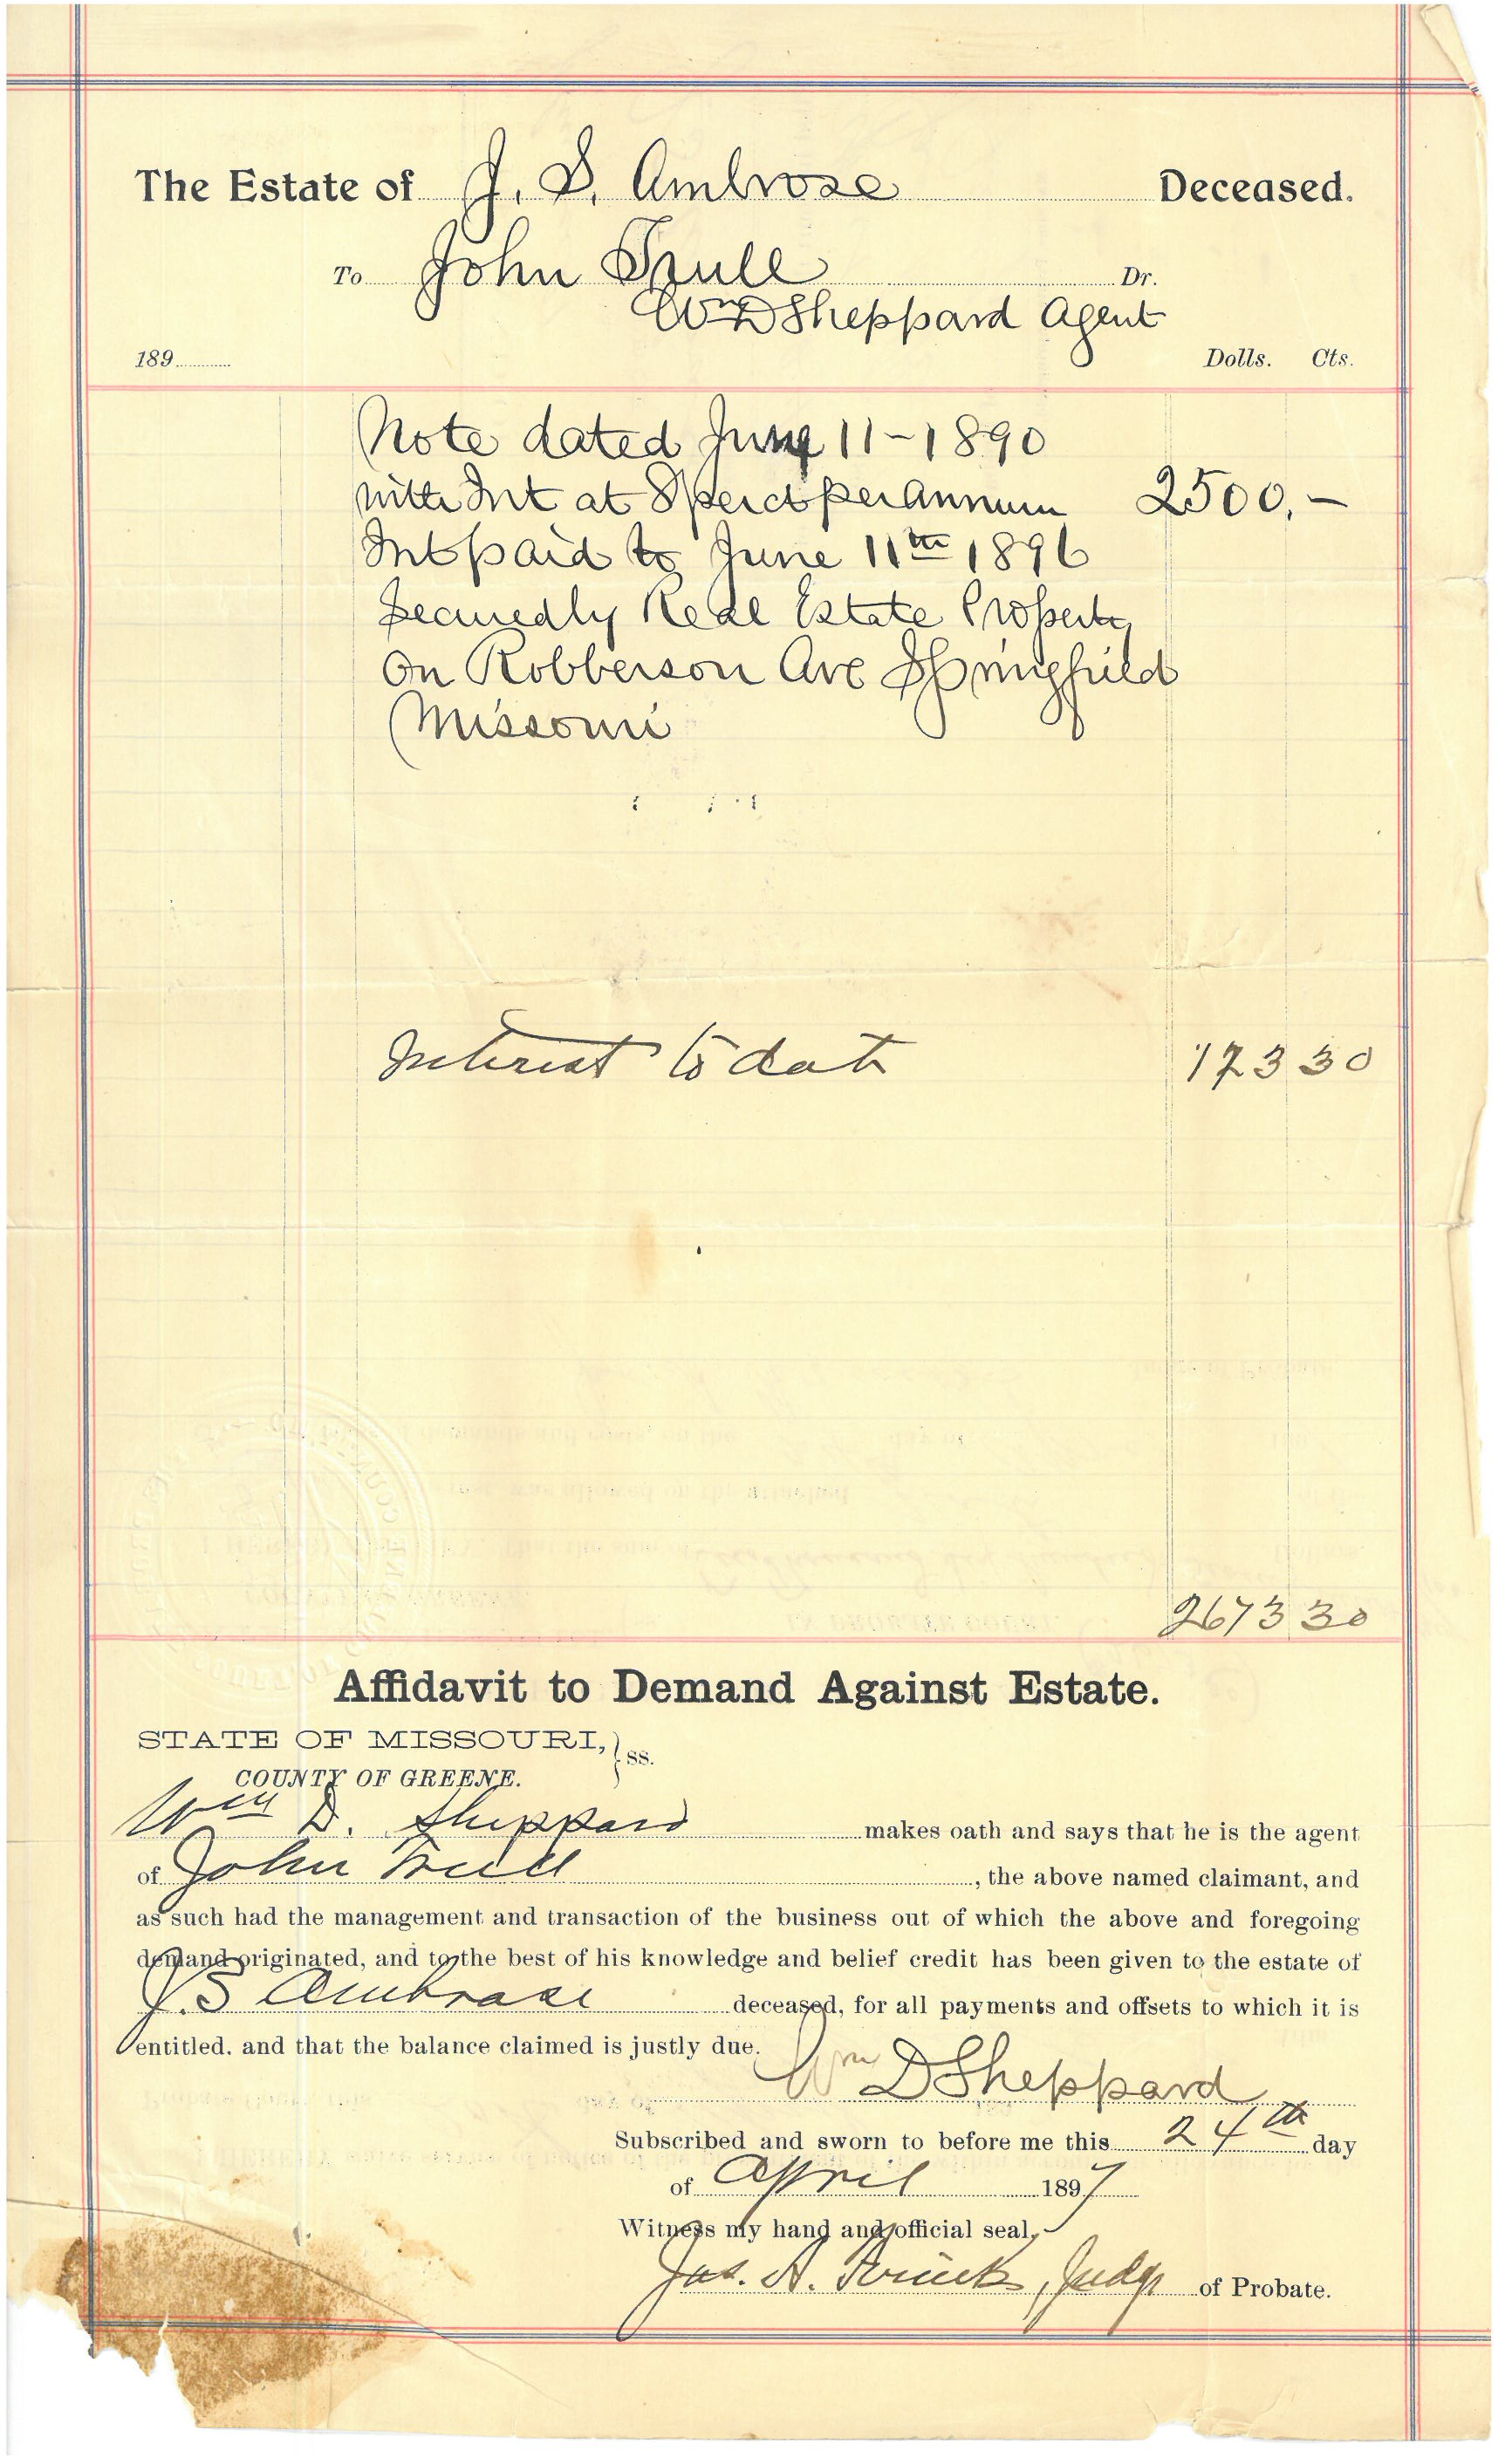 The Estate of J. S. Ambrose Deceased.
To John Trull Dr.
Wm D Sheppard Agent
189 Dolls. Cts.
Note dated June 11-1890
with Int at 8 per ct per annum 2500.-
Int paid to June 11th 1896
Securedly Real Estate Property
on Robberson Ave Springfield
Missouri
Interest to date 173 30
2673 30
Affidavit to Demand Against Estate.
STATE OF MISSOURI, } ss.
COUNTY OF GREENE.
Wm D. Sheppard makes oath and says that he is the agent
of John Trull, the above named claimant, and
as such had the management and transaction of the business out of which the above and foregoing
demand originated, and to the best of his knowledge and belief credit has been given to the estate of
J. S Ambrose deceased, for all payments and offsets to which it is
entitled. and that the balance claimed is justly due.
Wm D Sheppard
Subscribed and sworn to before me this 24th day
of April 1897
Witness my hand and official seal,
Jas. A. Judge of Probate.